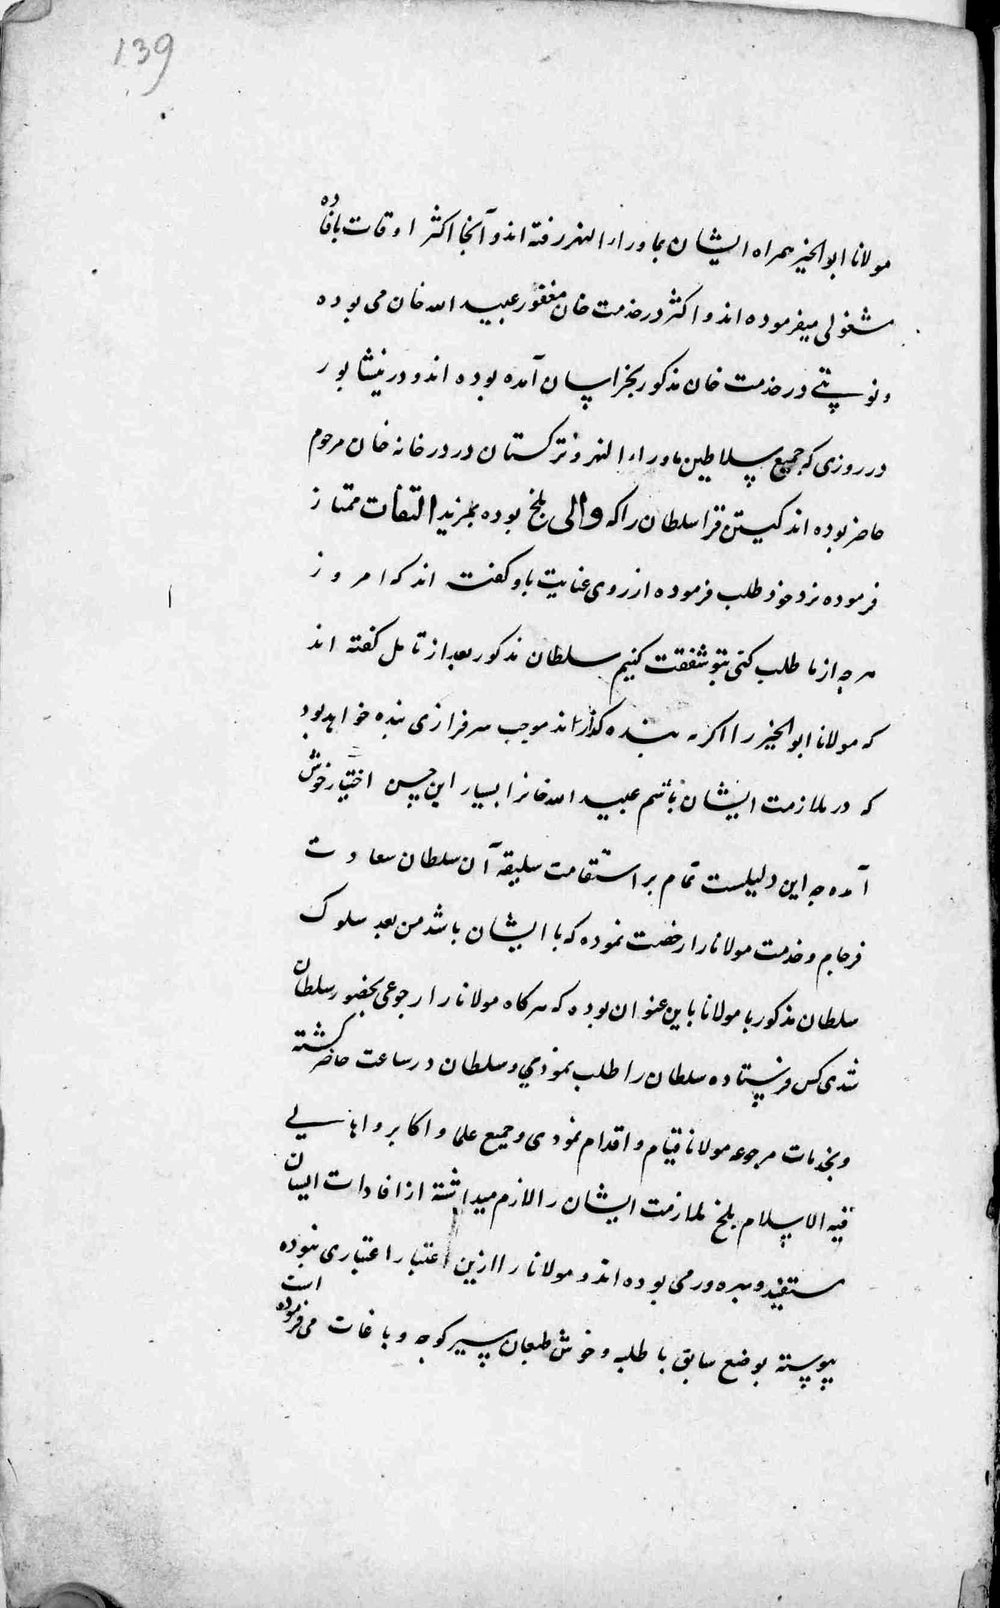 139
مولانا ابوالخیر همراه ایشان بماوراء النهر رفته اند و آنجا اکثر اوقات بافاده
مشغولی میفرموده اند و اکثر در خدمت خان مغفور عبید الله خان می بوده
و نوبتی در خدمت خان مذکور بخراسان آمده بوده اند و در نیشابور
در روزی که جمیع سلاطین ماوراء النهر و ترکستان در در خانه خان مرحوم
حاضر بوده اند کیستن قرا سلطان را که والی بلخ بوده بمزید التفات ممتاز
فرموده نزد خود طلب فرموده از روی عنایت باو گفت اند که امروز
هرچه از ما طلب کنی بتو شفقت کنیم سلطان مذکور بعد از تامل گفته اند
که مولانا ابوالخیر را اگر به بنده گذارند موجب سرفرازی بنده خواهد بود
که در ملازمت ایشان باشم عبید الله خانرا بسیار این حسن اختیار خوش
آمده چه این دلیلست تمام بر استقامت سلیقه آن سلطان سعادت
فرجام و خدمت مولانا را رخصت نموده که با ایشان باشد من بعد سلوک
سلطان مذکور با مولانا باین عنوان بوده که هرگاه مولانا را رجوعی بحضور سلطان
شدی کس فرستاده سلطان را طلب نمودی و سلطان در ساعت حاضر گشته
و بخدمات مرجوعه مولانا قیام و اقدام نمودی و جمیع علما و اکابر و اهالی
قبه الاسلام بلخ ملازمت ایشان را لازم میداشته از افادات ایشان
مستفید و بهره ور می بوده اند و مولانا را ازین اعتبار اعتباری نبوده
پیوسته بوضع سابق با طلبه و خوش طبعان سیر کوچه و باغات می فرموده است